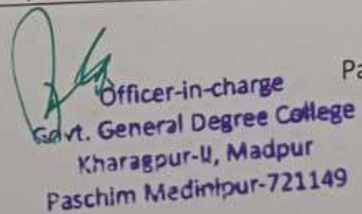 Officer-in-charge Pa
Govt. General Degree College
Kharagpur-II, Madpur
Paschim Medinipur-721149